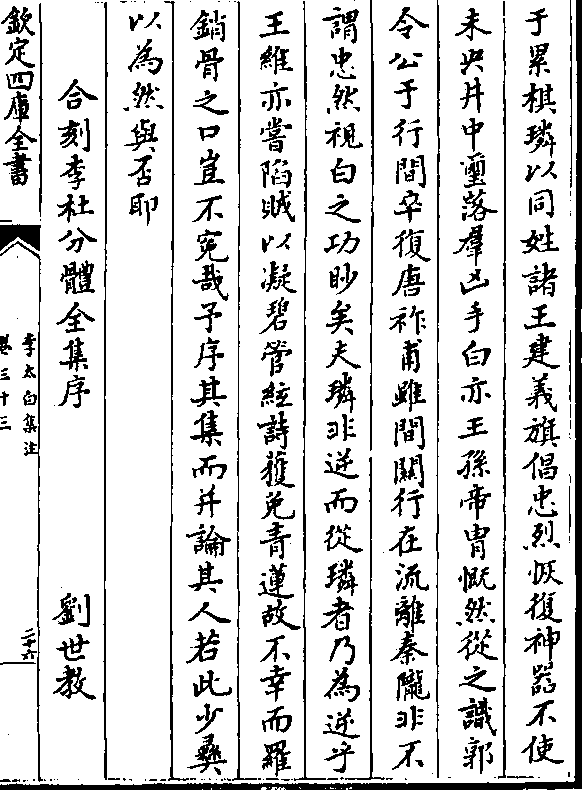 于累棋璘以同姓諸王建義旗倡忠烈恢復神器不使
未央井中璽落羣凶手白亦王孫帝胄慨然從之識郭
令公于行間卒復唐祚甫雖間關行在流離秦隴非不
謂忠然視白之功眇矣夫璘非逆而從璘者乃為逆乎
王維亦嘗陷賊以凝碧管絃詩獲免青蓮故不幸而羅
銷骨之口豈不寃哉予序其集而并論其人若此少彞
以為然與否耶
合刻李杜分體全集序 劉世教
欽定四庫全書
李太白集注
卷三十三
二十六